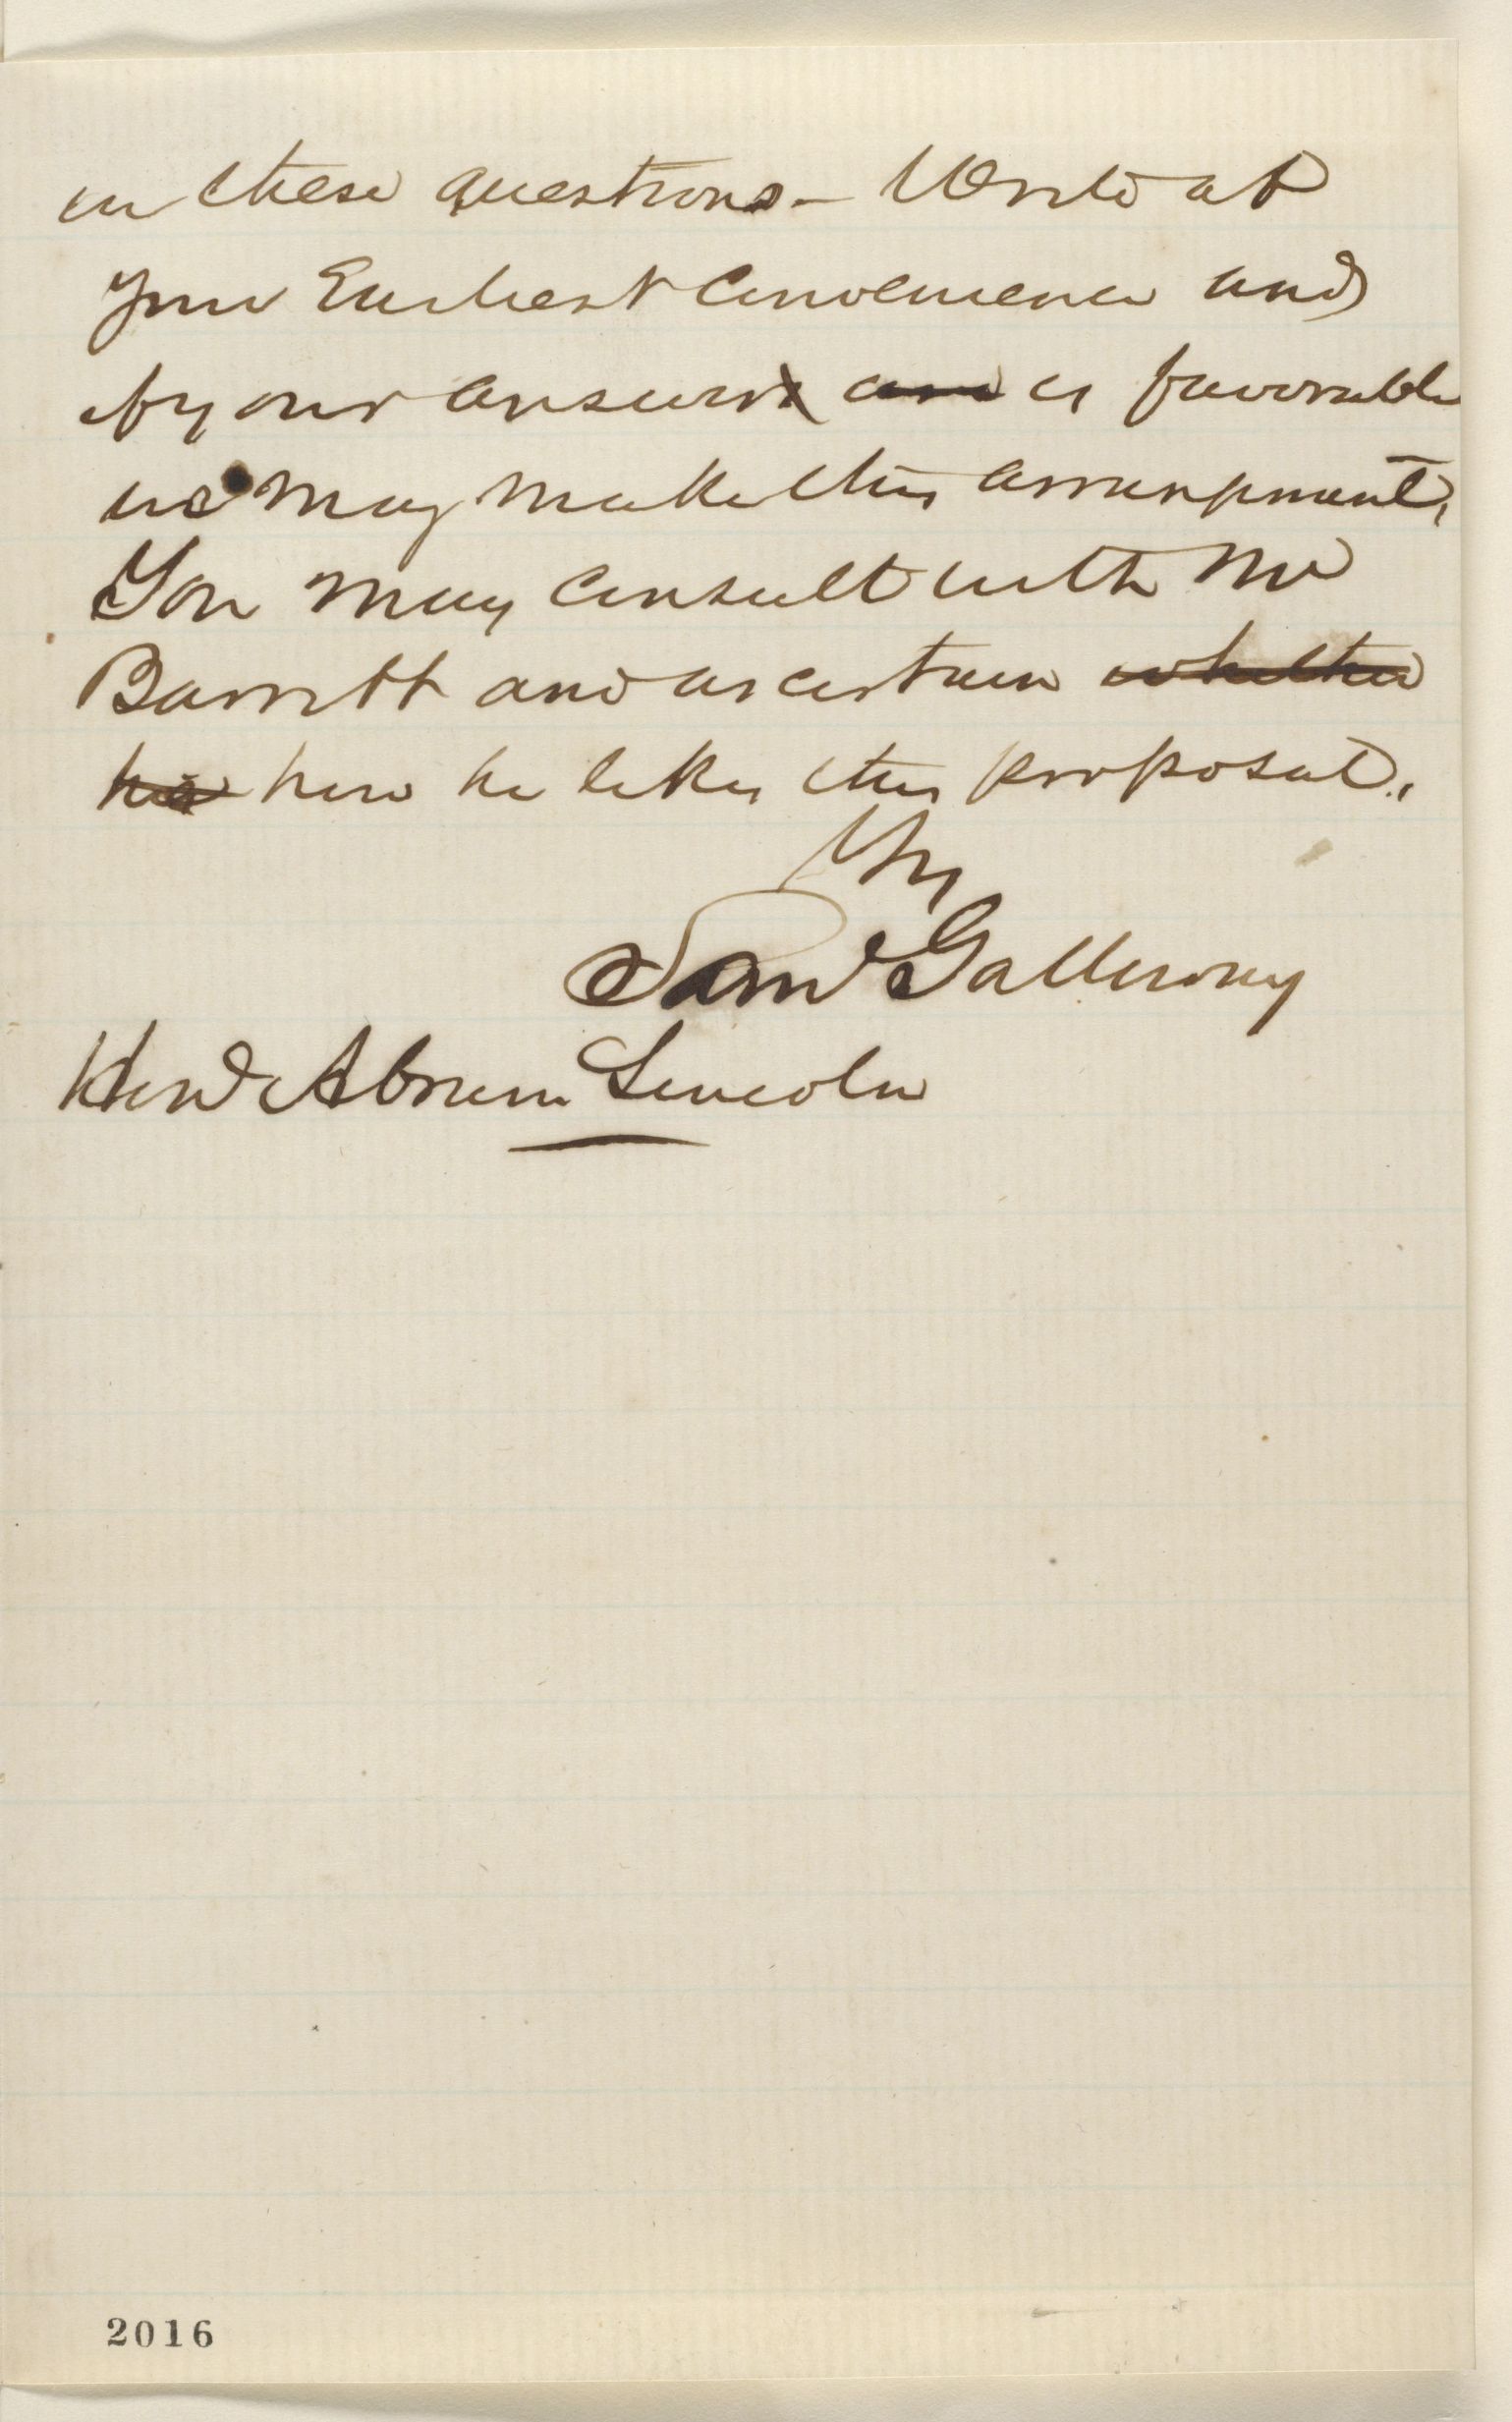 in these questions — Write at
your Earliest Convenience and
if your answer are is favorable
we may make this arrangement,
You may consult with Mr
Barrett and ascertain whether
he how he likes this proposal.
Yrs
Saml Galloway
Hond Abram Lincoln
2016